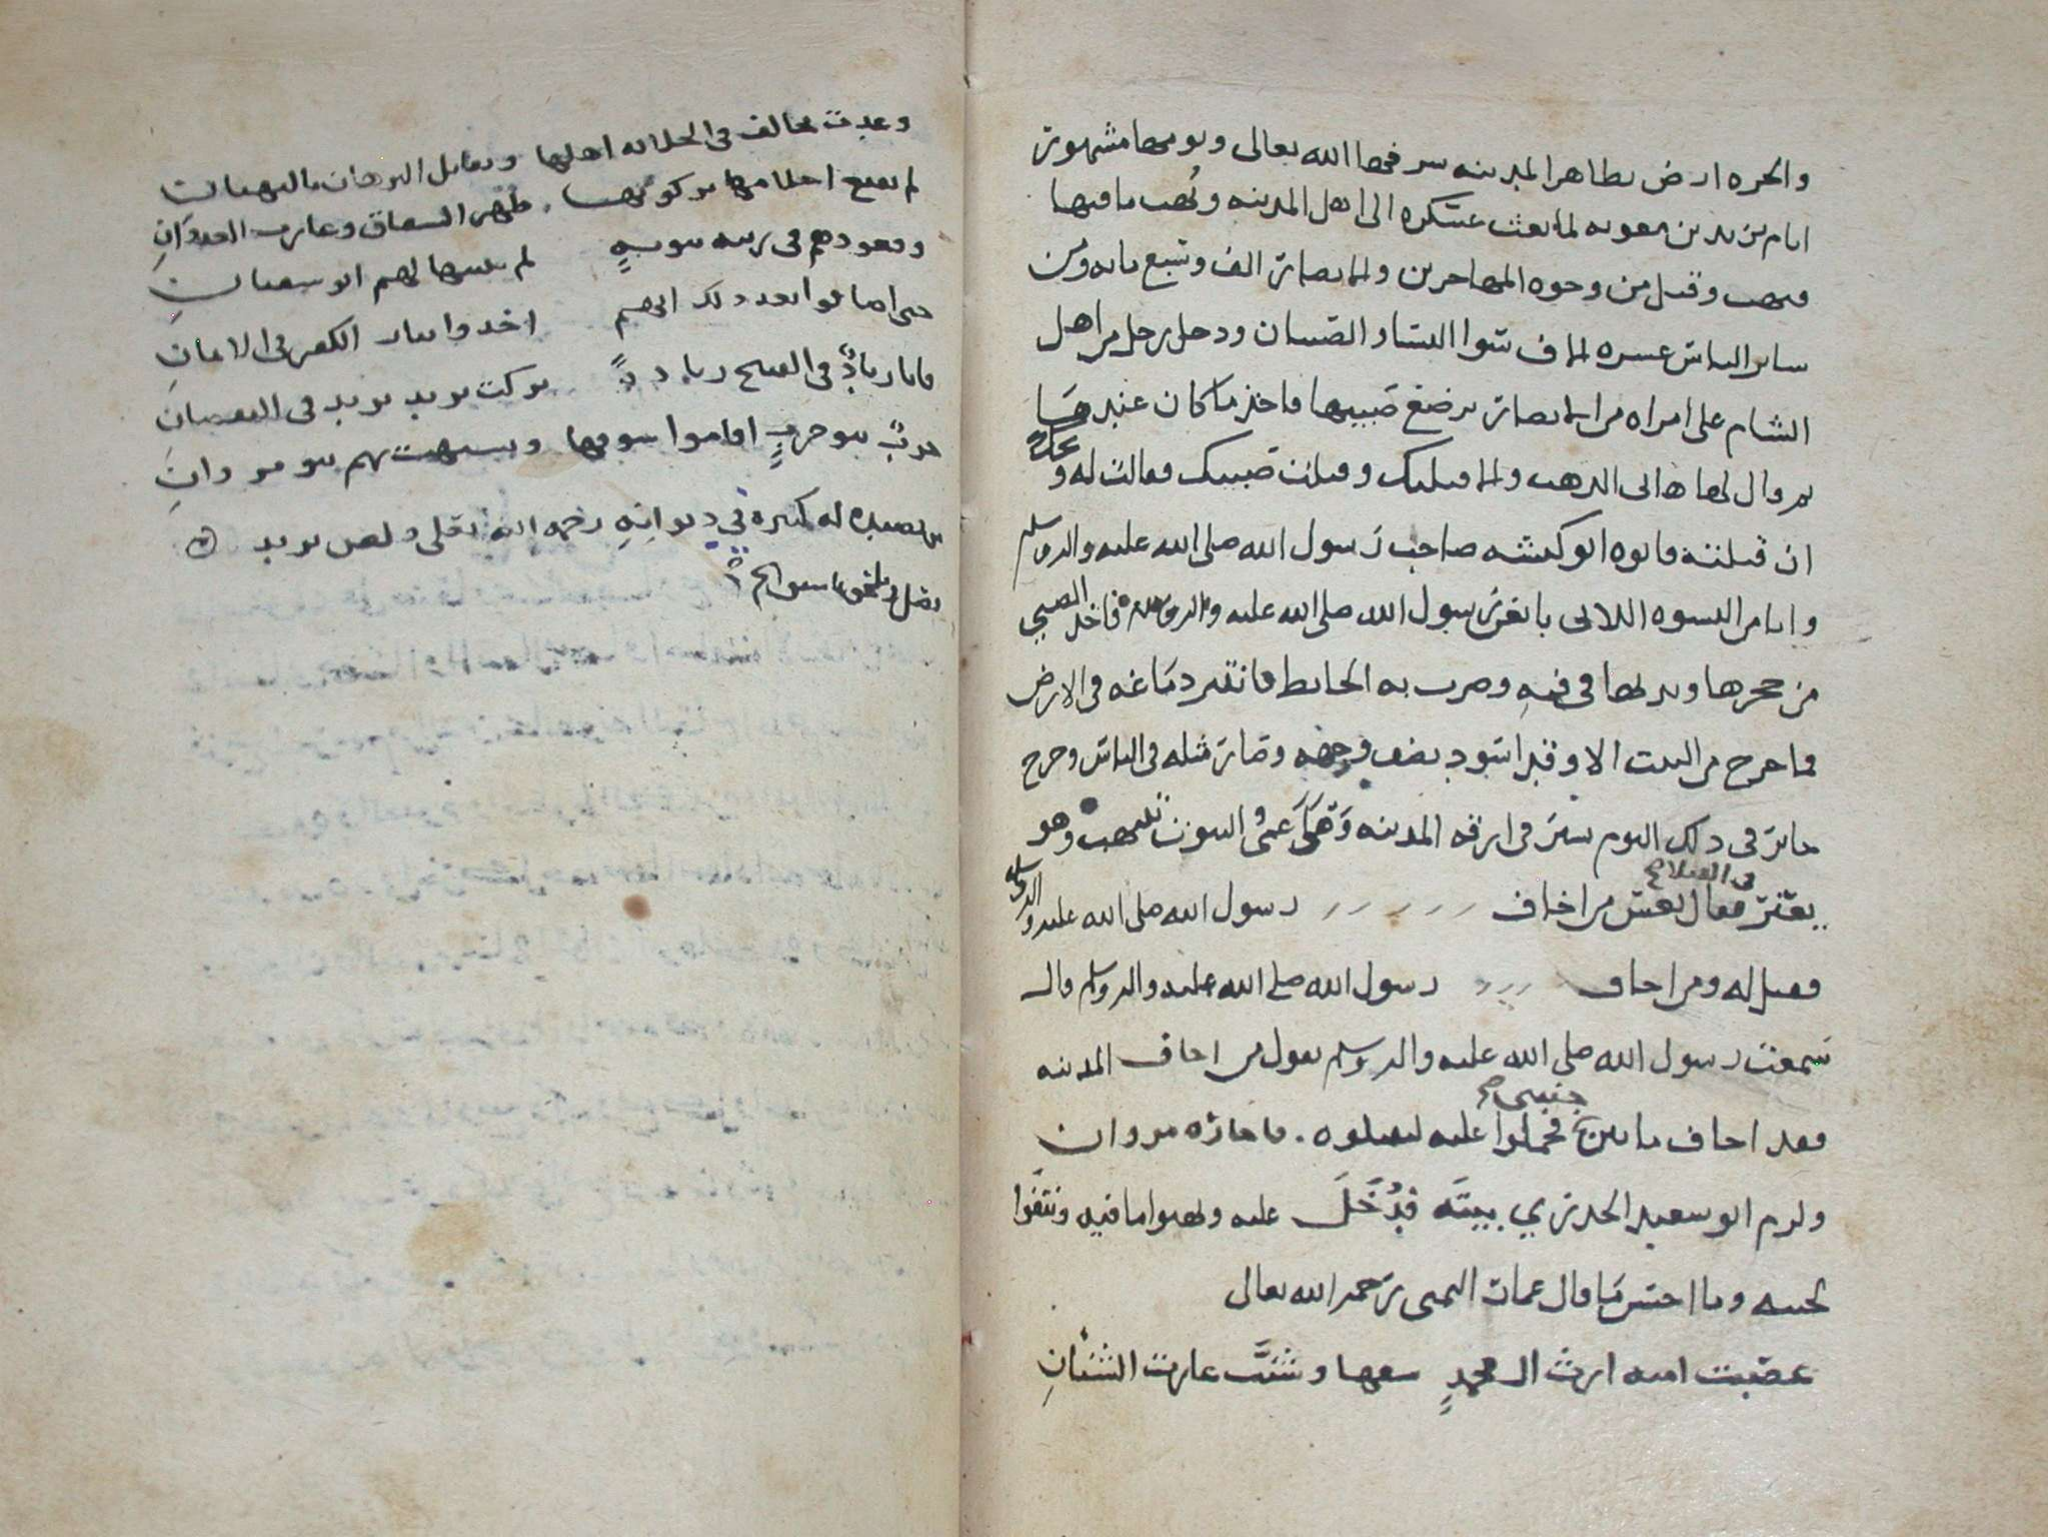 والحره ارض بظاهر المدينه شرفها الله تعالى ويومها مشهور
ايام يزيد بن معويه لما بعث عسكره الى اهل المدينه ونُهب ما فيها
وقتل من وجوه المهاجرين والانصار الف وسبع مايه ومن
ساير الناس عشره الاف سوا النسا والصبيان ودخل رجل من اهل
الشام على امراه من الانصار ترضع صبيها فاخذ ما كان عندها
وقال لها هاتى الذهب والا قتلتك وقتلت صبيك فقالت له ويحك
ان قتلته فابوه ابو كبشه صاحب رسول الله صلى الله عليه واله وسلم
وانا من النسوه اللاتى بايعن رسول الله صلى الله عليه واله وسلم فاخذ الصبي
من حجرها وثديها في فيهِ وضرب به الحايط فانتثر دماغه في الارض
فما خرج من البيت الا وقد اسود نصف وجهه وصار مثله في الناس وخرج
جابر في ذلك اليوم يسير في ازقه المدينه وهو اعمى والبيوت تنهب وهو
يعثر في القتلا فقال تعس من اخاف رسول الله صلى الله عليه واله وسلم
فقيل له ومن اخاف رسول الله صلى الله عليه واله وسلم قال
سمعت رسول الله صلى الله عليه واله وسلم يقول من اخاف المدينه
فقد اخاف ما بين جنبي فحملوا عليه ليقتلوه . فاجاره مروان
ولزم ابو سعيد الخدري بيته فدُخل عليه ونهبوا ما فيه ونتفوا
لحيته وما احسن ما قال عماره اليمنى رحمه الله تعالى
غصبت اميه ارث ال محمدٍ سفها وشنّت غارت الشنانِ
وغدت تخالف في الخلافه اهلها وتقابل البرهان بالبهتان
لم تقتنع احلامها بركوبها . ظهر النفاق وغارب العدوانِ
وقعودهم في رتبه نبويهٍ لم يبنها لهم ابو سفيان
حتى اضافوا بعد ذلك انهم اخذوا بثار الكفر في الايمانِ
فاتا زيادٌ في القبيح زيادهً تركت يزيد يزيد في النقصان
حربٌ بنو حربٍ اقاموا سوقها وتشبهت بهم بنو مروانِ
من قصيده له كبيره في ديوانِهِ رحمه الله تعلى